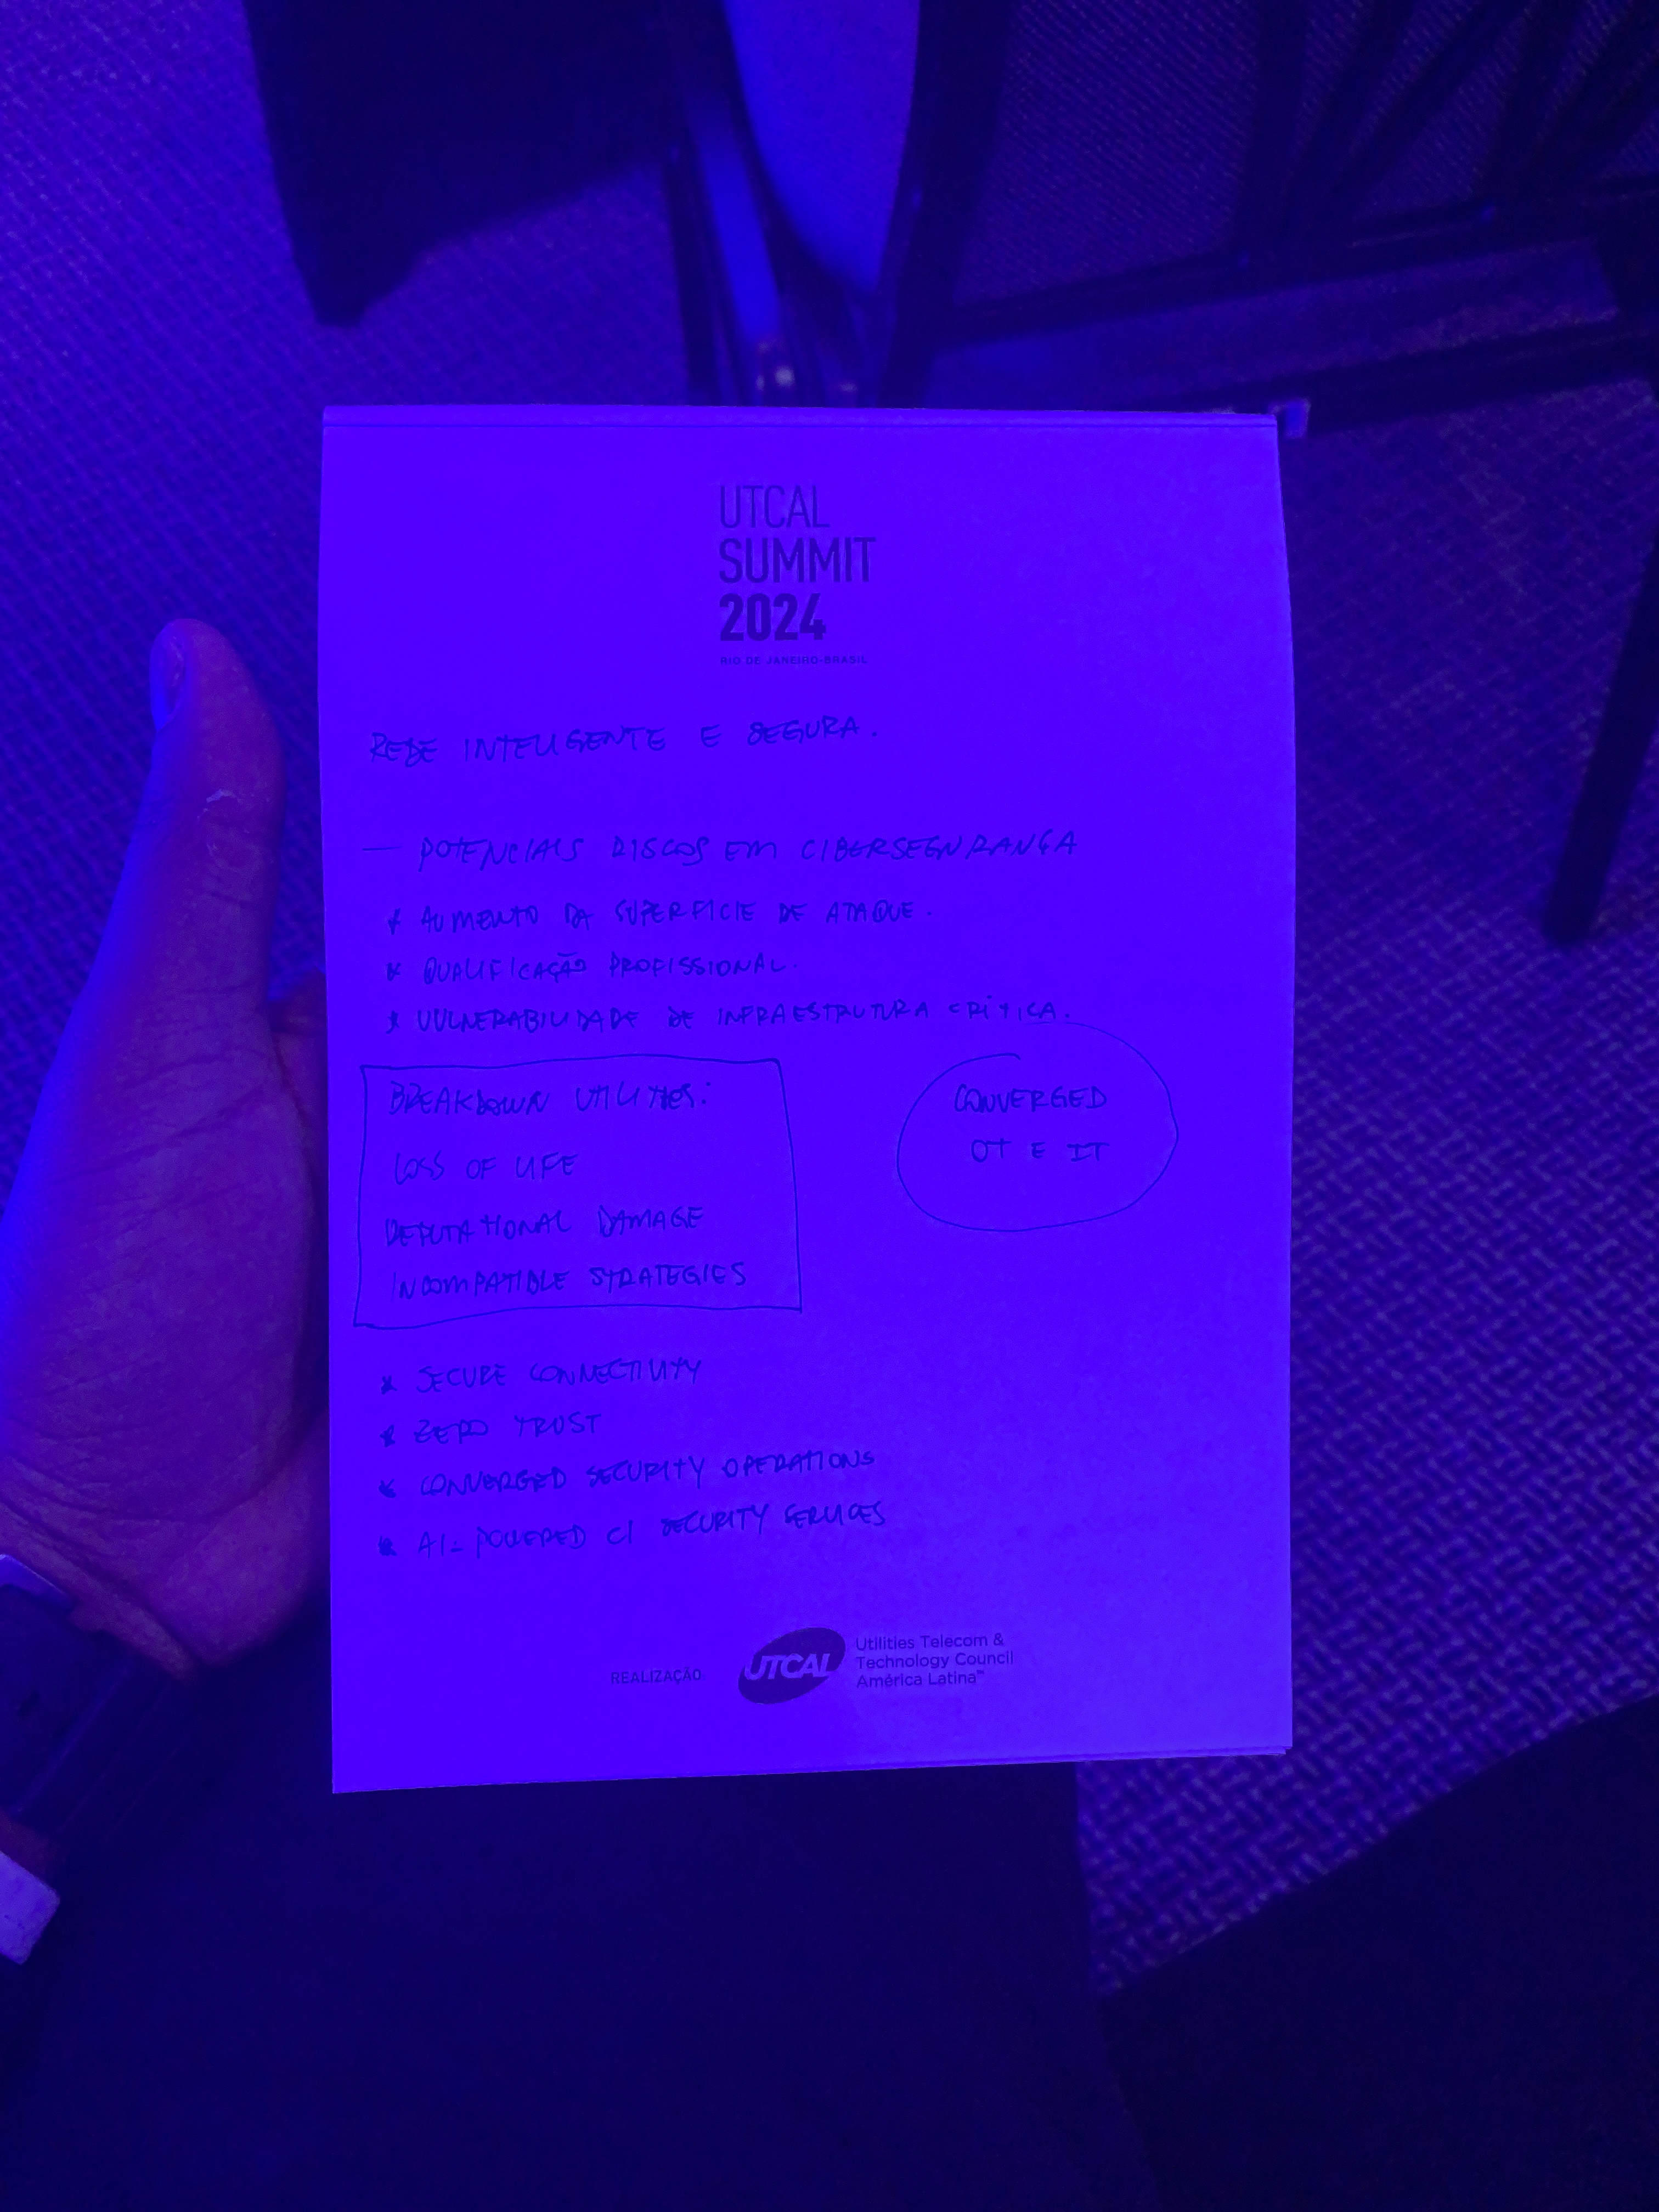 UTCAL
SUMMIT
2024
RIO DE JANEIRO-BRASIL
REDE INTELIGENTE E SEGURA.
— POTENCIAIS RISCOS EM CIBERSEGURANÇA
* AUMENTO DA SUPERFICIE DE ATAQUE.
* QUALIFICAÇÃO PROFISSIONAL.
* VULNERABILIDADE DE INFRAESTRUTURA CRÍTICA.
BREAKDOWN UTILITIES:
LOSS OF LIFE
REPUTATIONAL DAMAGE
INCOMPATIBLE STRATEGIES
CONVERGED
OT E IT
* SECURE CONNECTIVITY
* ZERO TRUST
* CONVERGED SECURITY OPERATIONS
* AI-POWERED CI SECURITY SERVICES
REALIZAÇÃO
UTCAL
Utilities Telecom &
Technology Council
América Latina™